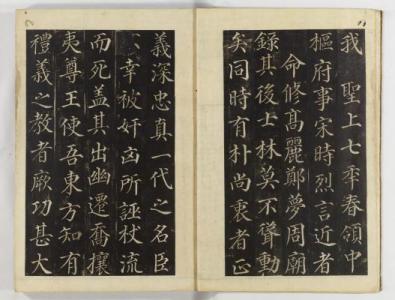 我 聖上七年春領中
樞府事宋時烈言近者
命修髙麗鄭夢周廟
錄其後士林莫不聳動
矣同時有朴尚衷者正
義深忠真一代之名臣
不幸被奸凶所誣杖流
而死盖其出幽遷喬攘
夷尊王使吾東方知有
禮義之教者厥功甚大